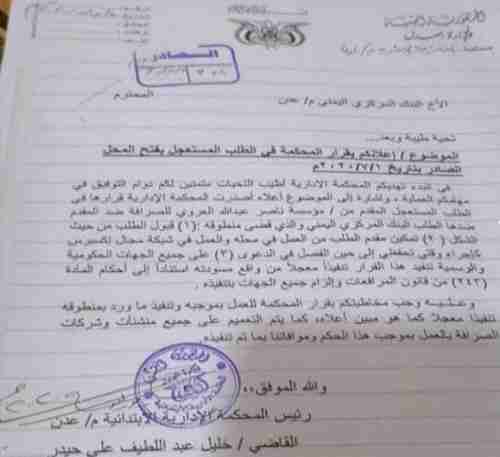 الجمهورية اليمنية
وزارة العدل
الصادر
الأخ البنك المركزي اليمني م/ عدن
المحترم
تحية طيبة وبعد،،،
الموضوع / إعلانكم بقرار المحكمة في الطلب المستعجل بفتح المحل
الصادر بتاريخ ٢٠٢٠/٧/١م
في البدء تهديكم المحكمة الادارية أطيب التحيات متمنين لكم دوام التوفيق في
مهامكم العملية، وإشارة إلى الموضوع أعلاه أصدرت المحكمة الإدارية قرارها في
الطلب المستعجل المقدم من / مؤسسة ناصر عبدالله الحروي للصرافة ضد المقدم
ضدها الطلب البنك المركزي اليمني والذي قضى منطوقه :(١) قبول الطلب من حيث
الشكل (٢) تمكين مقدم الطلب من العمل في محله والعمل في شبكة مجال إكسبرس
كإجراء وقتي تحفظي إلى حين الفصل في الدعوى (٣) على جميع الجهات الحكومية
والرسمية تنفيذ هذا القرار تنفيذاً معجلاً من واقع مسودته استناداً إلى أحكام المادة
(٢٤٢) من قانون المرافعات وإلزام جميع الجهات بتنفيذه .
وعليه وجب مخاطبتكم بقرار المحكمة للعمل بموجبه وتنفيذ ما ورد بمنطوقه
تنفيذاً معجلاً كما هو مبين أعلاه، كما يتم التعميم على جميع منشئات وشركات
الصرافة بالعمل بموجب هذا الحكم وموافاتنا بما تم تنفيذه.
والله الموفق،،،
رئيس المحكمة الإدارية الابتدائية م/ عدن
القاضي / خليل عبد اللطيف علي حيدر